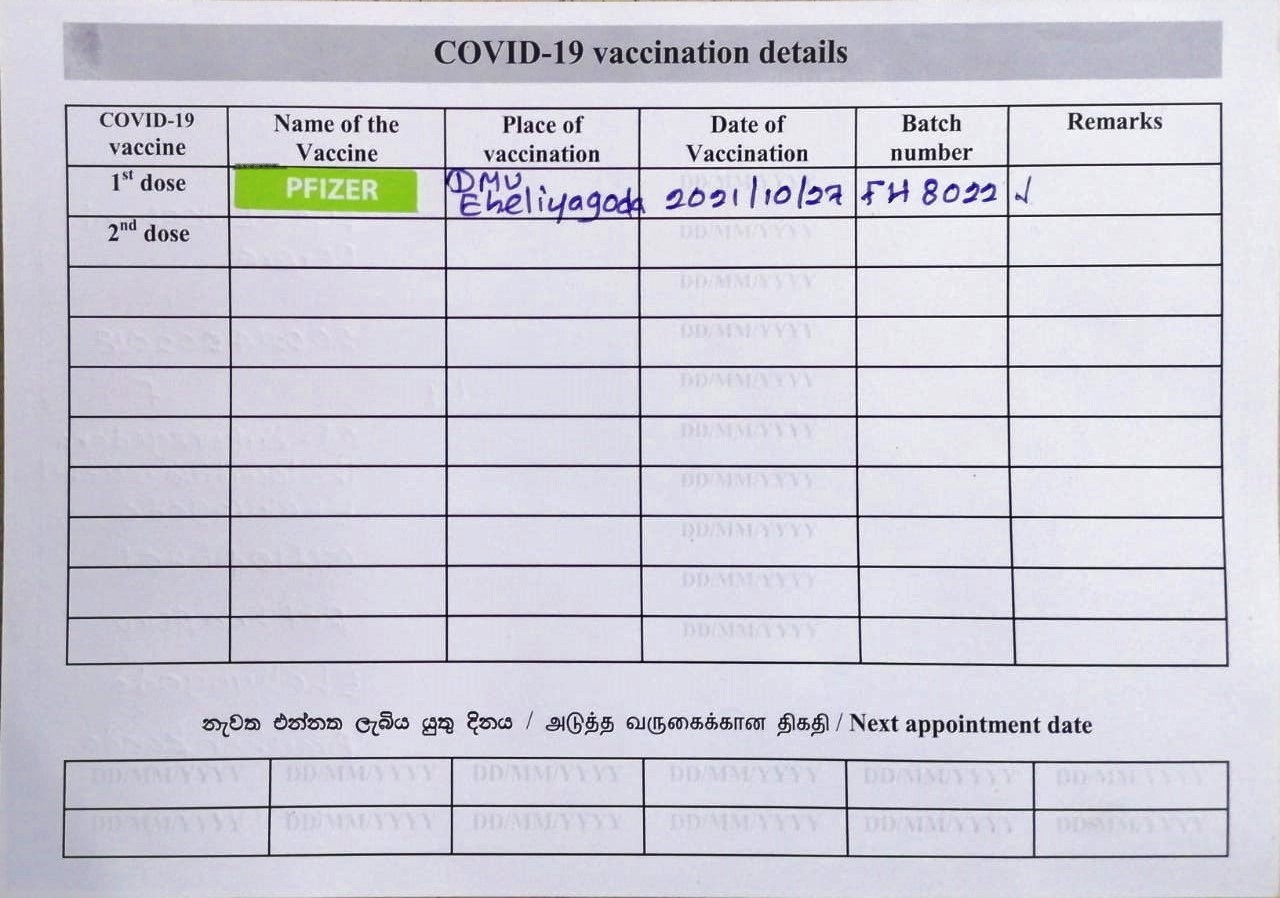 COVID-19 vaccination details
COVID-19 vaccine
Name of the Vaccine
Place of vaccination
Date of Vaccination
Batch number
Remarks
1st dose
PFIZER
DMU
Eheliyagoda
2021/10/27
FH 8022
2nd dose
DD/MM/YYYY
DD/MM/YYYY
DD/MM/YYYY
DD/MM/YYYY
DD/MM/YYYY
DD/MM/YYYY
DD/MM/YYYY
DD/MM/YYYY
DD/MM/YYYY
නැවත එන්නත ලැබිය යුතු දිනය / அடுத்த வருகைக்கான திகதி / Next appointment date
DD/MM/YYYY DD/MM/YYYY DD/MM/YYYY DD/MM/YYYY DD/MM/YYYY DD/MM/YYYY
DD/MM/YYYY DD/MM/YYYY DD/MM/YYYY DD/MM/YYYY DD/MM/YYYY DD/MM/YYYY